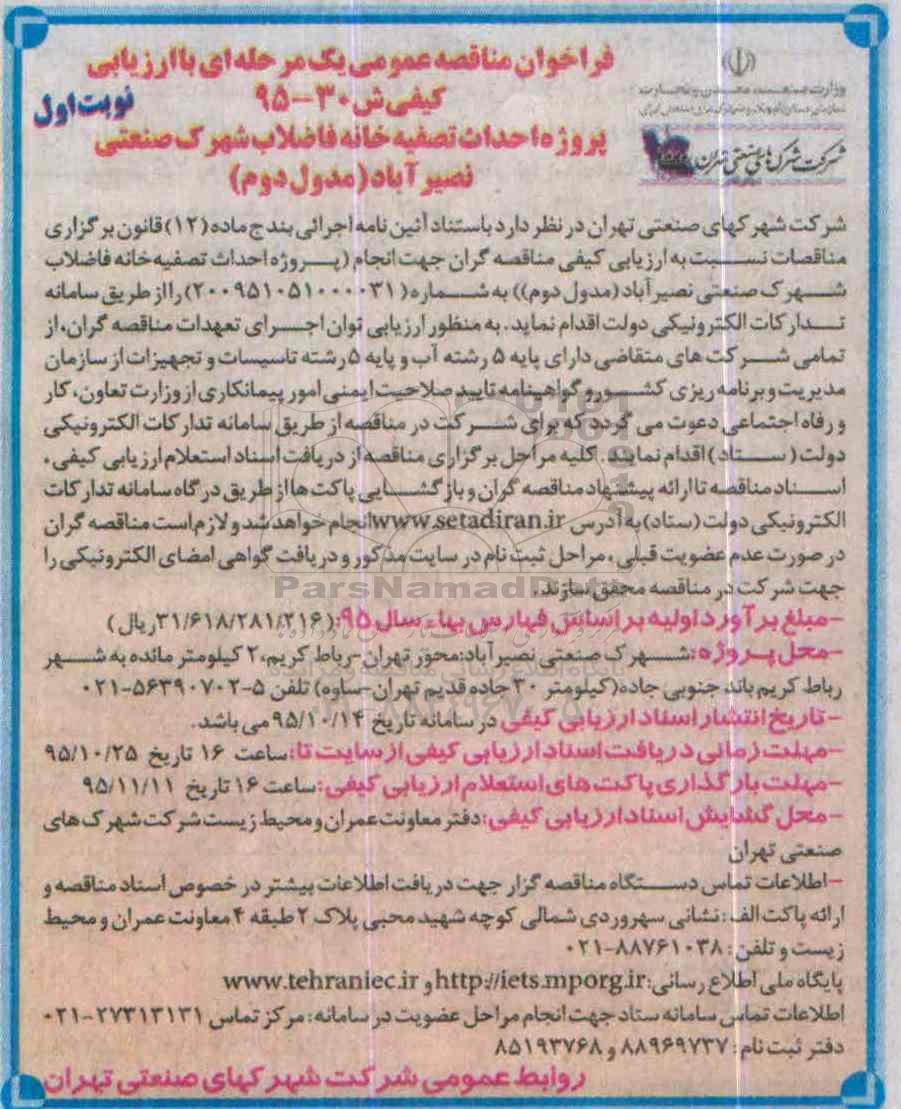 فراخوان مناقصه عمومی یک مرحله ای با ارزیابی
کیفی ش ۳۰-۹۵
نوبت اول
پروژه احداث تصفیه خانه فاضلاب شهرک صنعتی
نصیر آباد (مدول دوم)
وزارت صنعت، معدن و تجارت
شرکت شهرکهای صنعتی تهران
شرکت شهرکهای صنعتی تهران در نظر دارد باستناد آئین نامه اجرائی بند ج ماده (۱۲) قانون برگزاری
مناقصات نسبت به ارزیابی کیفی مناقصه گران جهت انجام (پروژه احداث تصفیه خانه فاضلاب
شهرک صنعتی نصیر آباد (مدول دوم)) به شماره (۲۰۰۹۵۱۰۵۱۰۰۰۰۳۱) را از طریق سامانه
تدارکات الکترونیکی دولت اقدام نماید. به منظور ارزیابی توان اجرای تعهدات مناقصه گران، از
تمامی شرکت های متقاضی دارای پایه ۵ رشته آب و پایه ۵ رشته تاسیسات و تجهیزات از سازمان
مدیریت و برنامه ریزی کشور و گواهینامه تایید صلاحیت ایمنی امور پیمانکاری از وزارت تعاون، کار
و رفاه اجتماعی دعوت می گردد که برای شرکت در مناقصه از طریق سامانه تدارکات الکترونیکی
دولت (ستاد) اقدام نمایند. کلیه مراحل برگزاری مناقصه از دریافت اسناد استعلام ارزیابی کیفی،
اسناد مناقصه تا ارائه پیشنهاد مناقصه گران و بازگشایی پاکت ها از طریق درگاه سامانه تدارکات
الکترونیکی دولت (ستاد) به آدرس www.setadiran.ir انجام خواهد شد و لازم است مناقصه گران
در صورت عدم عضویت قبلی، مراحل ثبت نام در سایت مذکور و دریافت گواهی امضای الکترونیکی را
جهت شرکت در مناقصه محقق سازند.
ParsNamadData
-مبلغ برآورد اولیه بر اساس فهارس بهاء سال ۹۵: (۳۱/۶۱۸/۲۸۱/۲۱۶ ریال)
-محل پروژه: شهرک صنعتی نصیر آباد: محور تهران-رباط کریم، ۲ کیلومتر مانده به شهر
رباط کریم باند جنوبی جاده (کیلومتر ۳۰ جاده قدیم تهران-ساوه) تلفن ۵-۵۶۳۹۰۷۰۲-۰۲۱
-تاریخ انتشار اسناد ارزیابی کیفی در سامانه تاریخ ۹۵/۱۰/۱۴ می باشد.
-مهلت زمانی دریافت اسناد ارزیابی کیفی از سایت تا: ساعت ۱۶ تاریخ ۹۵/۱۰/۲۵
-مهلت بارگذاری پاکت های استعلام ارزیابی کیفی: ساعت ۱۶ تاریخ ۹۵/۱۱/۱۱
-محل گشایش اسناد ارزیابی کیفی: دفتر معاونت عمران و محیط زیست شرکت شهرک های
صنعتی تهران
-اطلاعات تماس دستگاه مناقصه گزار جهت دریافت اطلاعات بیشتر در خصوص اسناد مناقصه و
ارائه پاکت الف: نشانی سهروردی شمالی کوچه شهید محبی پلاک ۲ طبقه ۴ معاونت عمران و محیط
زیست و تلفن: ۸۸۷۶۱۰۳۸-۰۲۱
پایگاه ملی اطلاع رسانی: http://iets.mporg.ir و www.tehraniec.ir
اطلاعات تماس سامانه ستاد جهت انجام مراحل عضویت در سامانه: مرکز تماس ۲۷۳۱۳۱۳۱-۰۲۱
دفتر ثبت نام: ۸۸۹۶۹۷۳۷ و ۸۵۱۹۳۷۶۸
روابط عمومی شرکت شهرکهای صنعتی تهران